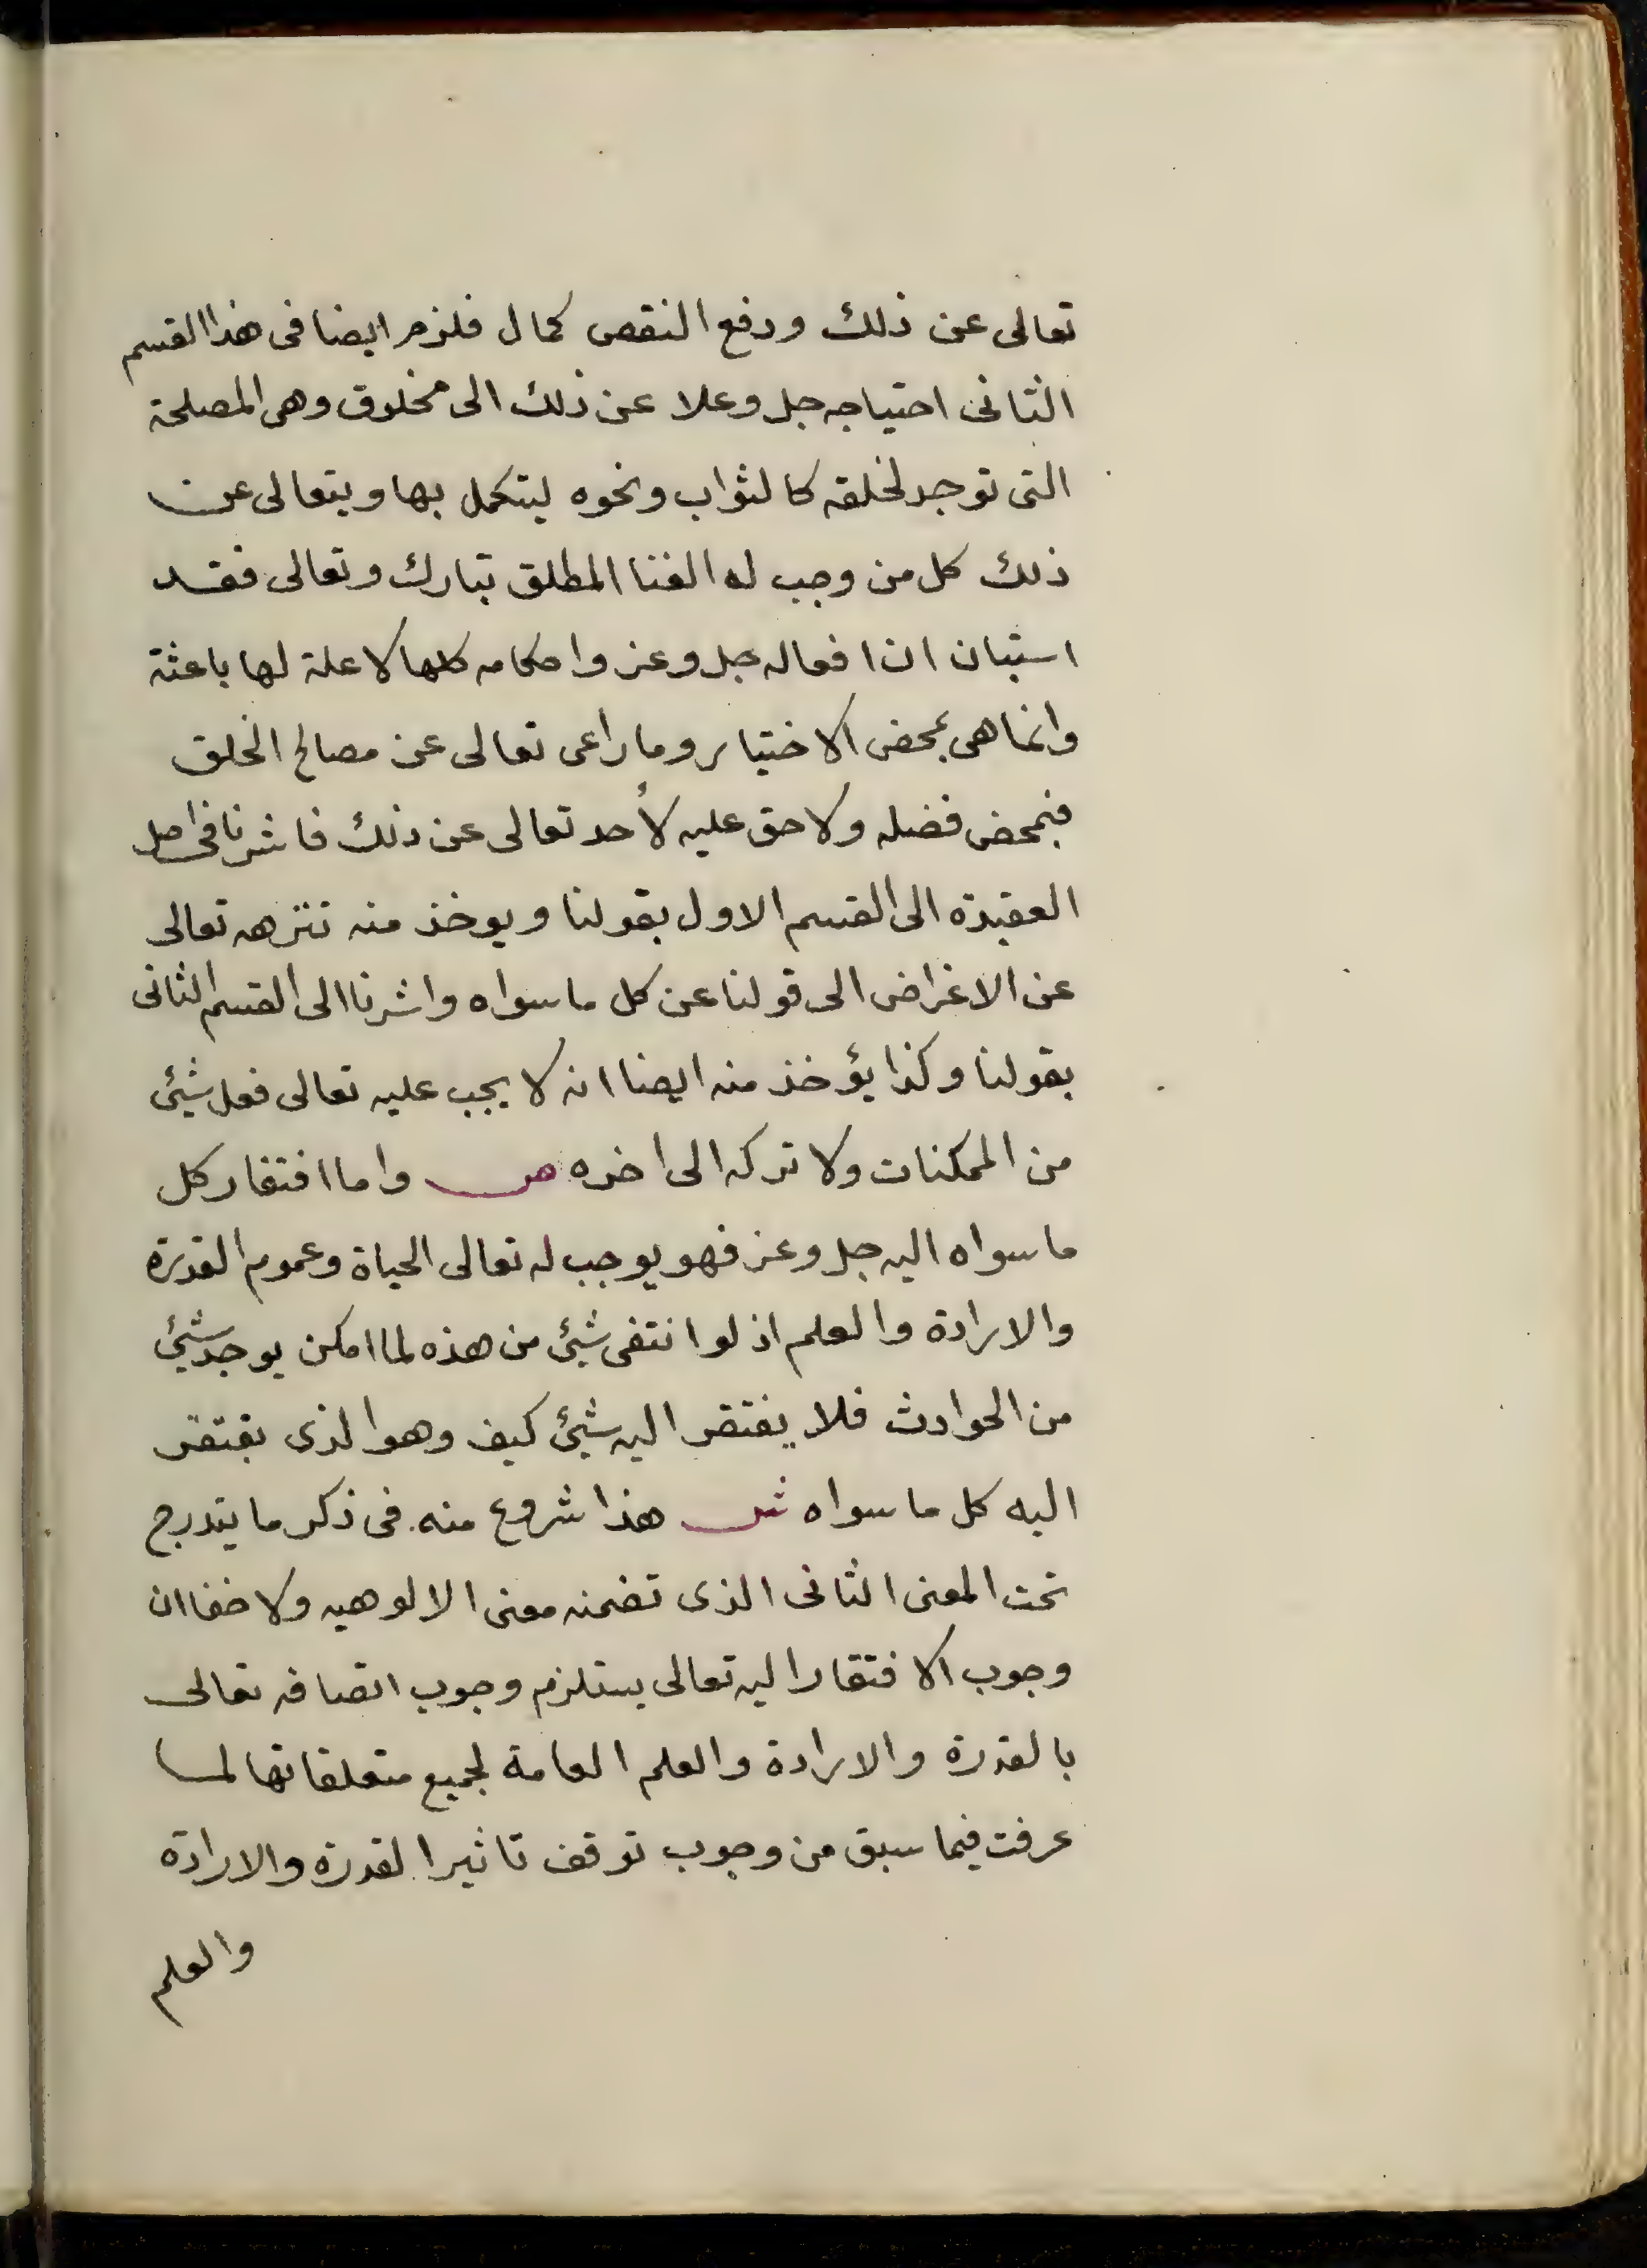 تعالى عن ذلك ودفع النقص كمال فلزم ايضا فى هذا القسم
الثانى احتياجه جل وعلا عن ذلك الى مخلوق وهى المصلحة
التى توجد لخلقه كالثواب ونحوه ليتكمل بها ويتعالى عن
ذلك كل من وجب له الغنا المطلق تبارك وتعالى فقد
استبان ان افعاله جل وعز واحكامه كلها لا علة لها باعثة
وانما هى بمحض الاختيار وما راعى تعالى عن مصالح الخلق
فبمحض فضله ولا حق عليه لأحد تعالى عن ذلك فاشرنا فى اصل
العقيدة الى القسم الاول بقولنا ويوخذ منه تنزهه تعالى
عن الاغراض الى قولنا عن كل ما سواه واشرنا الى القسم الثانى
بقولنا وكذا يؤخذ منه ايضا انه لا يجب عليه تعالى فعل شيئ
من الممكنات ولا تركه الى اخره ص واما افتقار كل
ما سواه اليه جل وعز فهو يوجب له تعالى الحياة وعموم القدرة
والارادة والعلم اذ لو انتفى شيئ من هذه لما امكن يوجد شيئ
من الحوادث فلا يفتقر اليه شيئ كيف وهو الذى يفتقر
اليه كل ما سواه ش هذا شروع منه فى ذكر ما يندرج
تحت المعنى الثانى الذى تضمنه معنى الالوهيه ولا خفا ان
وجوب الافتقار اليه تعالى يستلزم وجوب اتصافه تعالى
بالقدرة والارادة والعلم العامة لجميع متعلقاتها لما
عرفت فيما سبق من وجوب توقف تاثير القدرة والارادة
والعلم